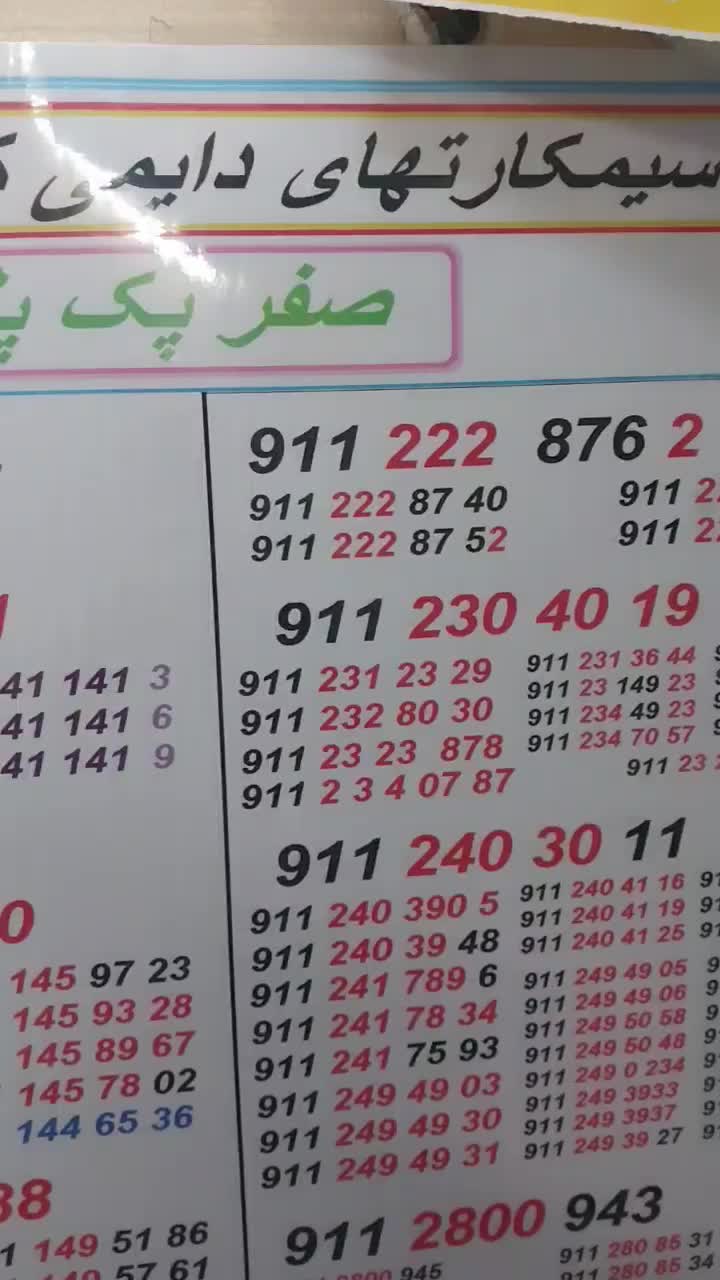 سیمکارتهای دایمی
صفر پک
911 222 876 2
911 222 87 40
911 222 87 52
911 230 40 19
911 231 23 29
911 232 80 30
911 23 23 878
911 2 3 4 07 87
911 231 36 44
911 23 149 23
911 234 49 23
911 234 70 57
911 23
911 240 30 11
911 240 390 5
911 240 39 48
911 241 789 6
911 241 78 34
911 241 75 93
911 249 49 03
911 249 49 30
911 249 49 31
911 240 41 16
911 240 41 19
911 240 41 25
911 249 49 05
911 249 49 06
911 249 50 58
911 249 50 48
911 249 0 234
911 249 3933
911 249 3937
911 249 39 27
911 2800 943
945
911 280 85 31
911 280 85 34
41 141 3
41 141 6
41 141 9
145 97 23
145 93 28
145 89 67
145 78 02
144 65 36
88
149 51 86
57 61